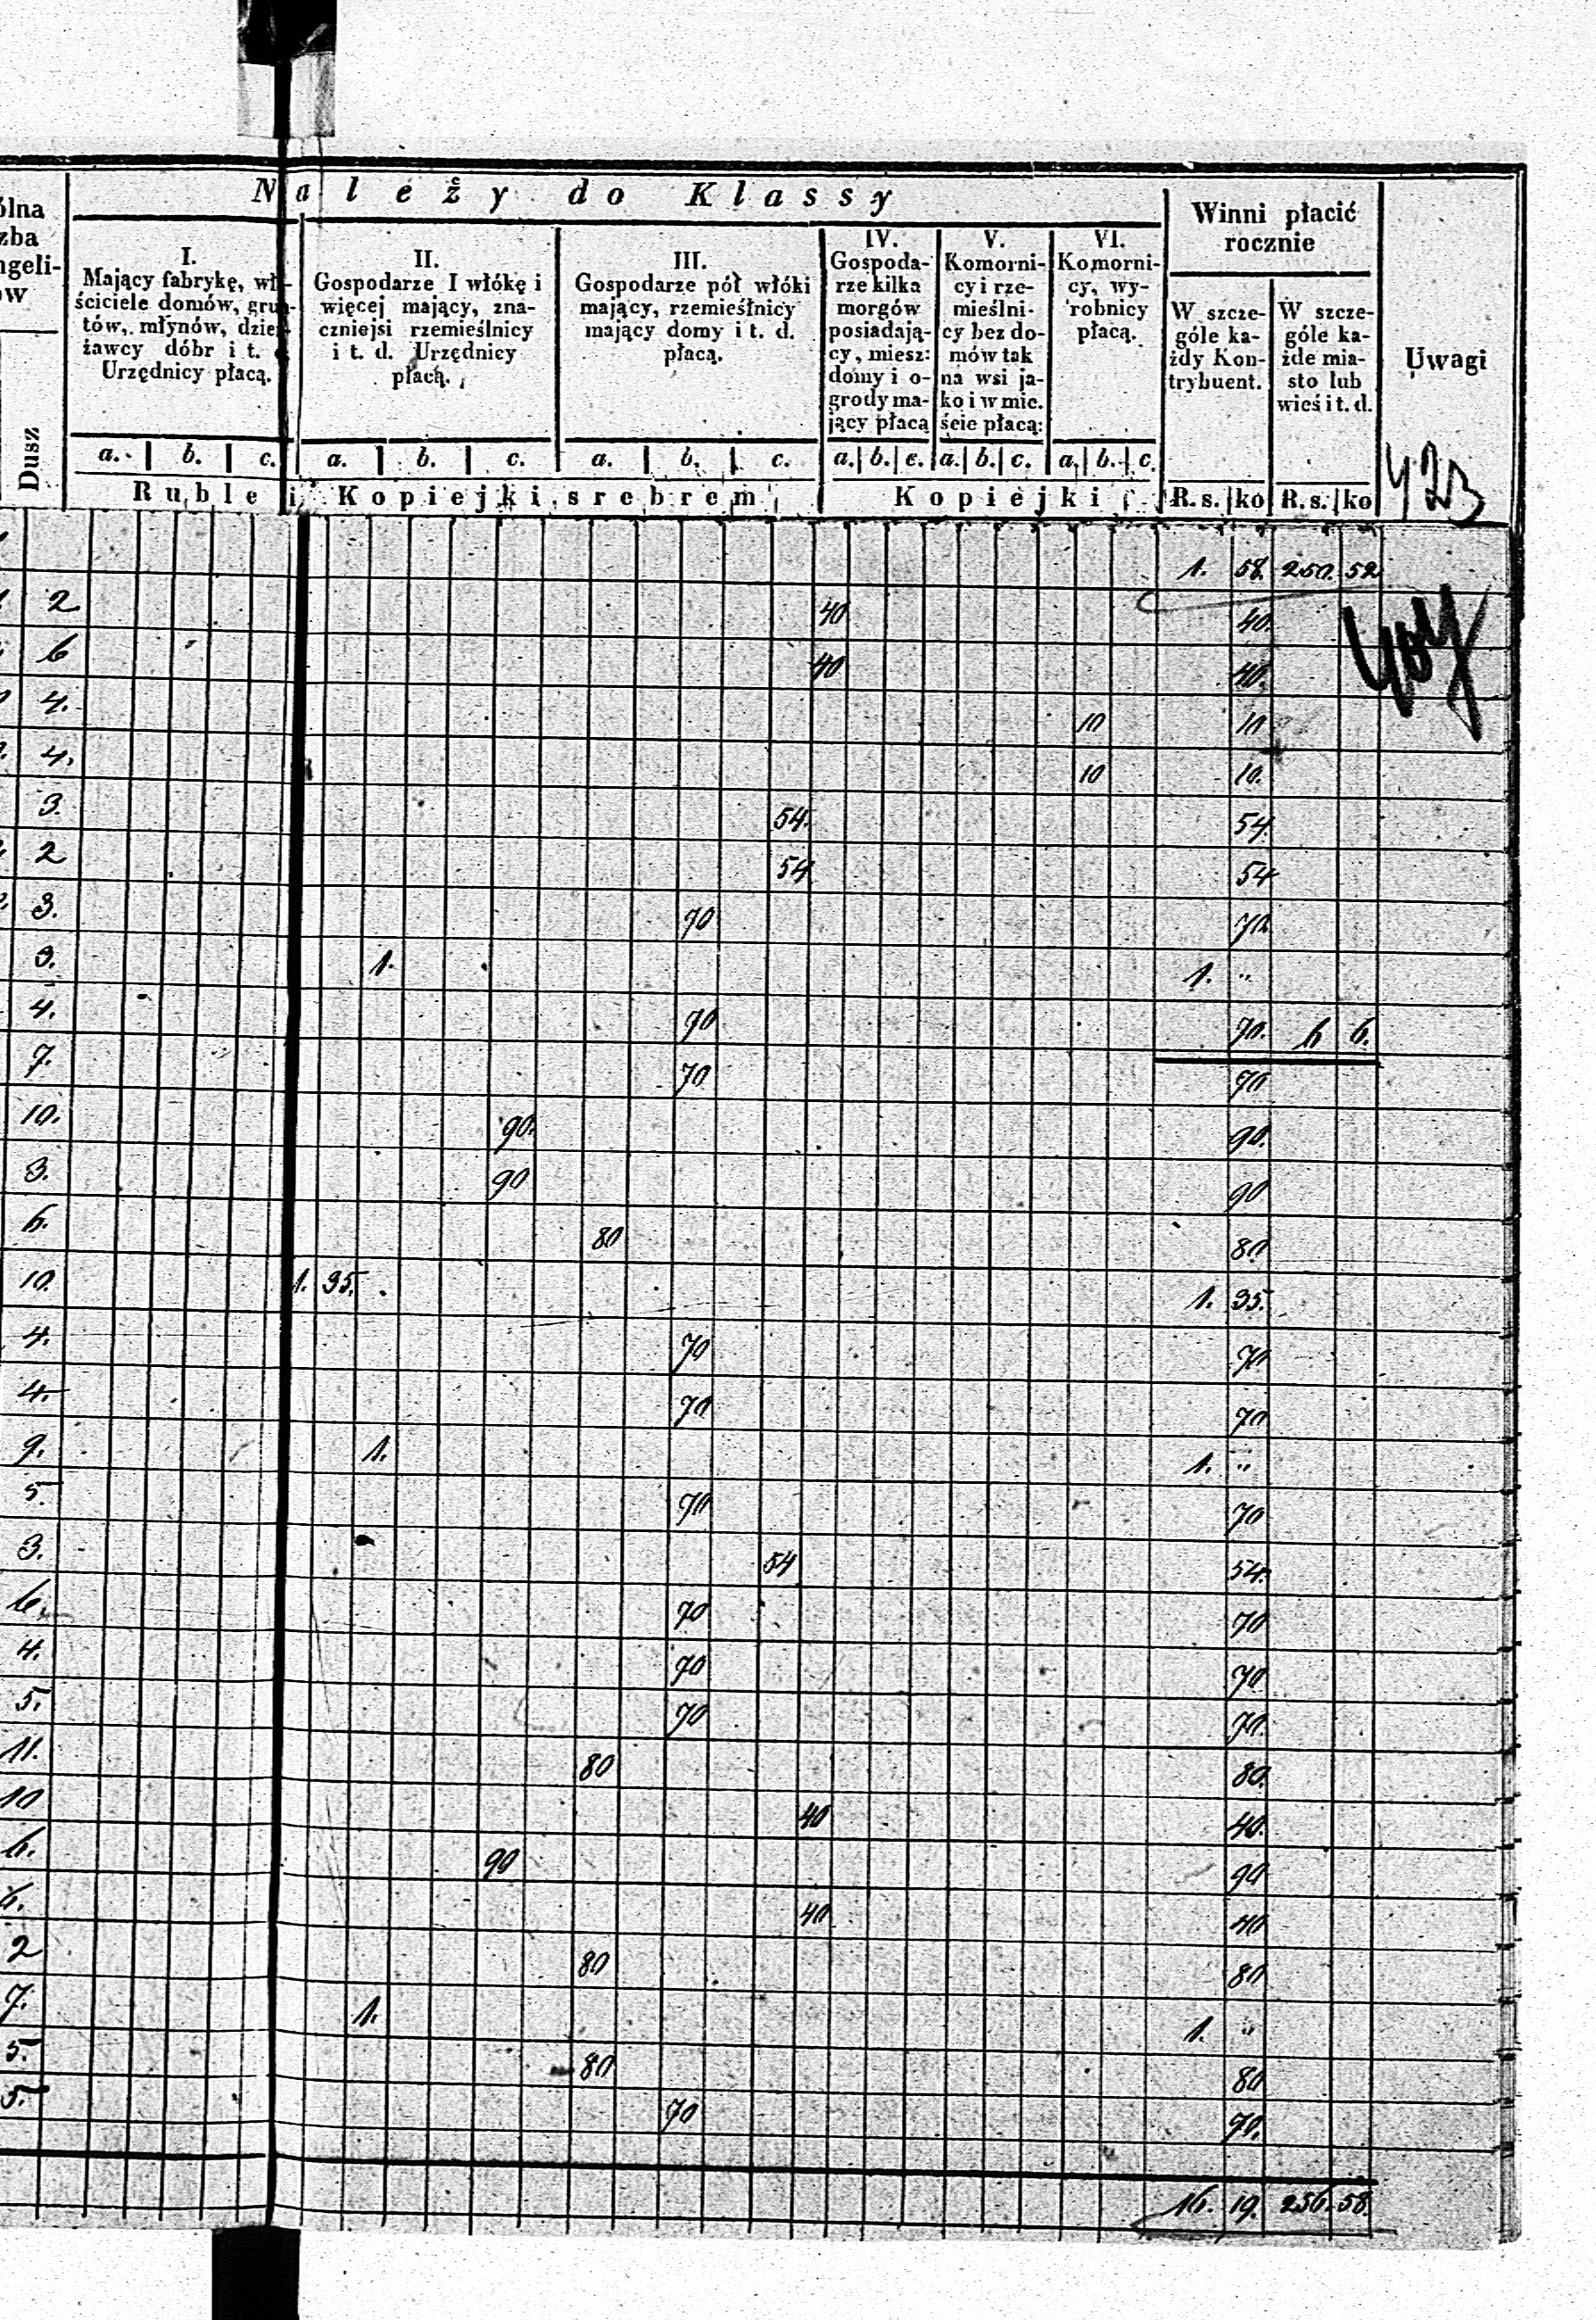 Należy do Klassy
ólna
zba
ngeli-
ów
Dusz
I.
Mający fabrykę, wł-
ściciele domów, grun-
tów, młynów, dzier-
żawcy dóbr i t. d.
Urzędnicy płacą.
II.
Gospodarze I włókę i
więcej mający, zna-
czniejsi rzemieślnicy
i t. d. Urzędnicy
płacą.
III.
Gospodarze pół włóki
mający, rzemieślnicy
mający domy i t. d.
płacą.
IV.
Gospoda-
rze kilka
morgów
posiadają-
cy, miesz:
domy i o-
grody ma-
jący płacą
V.
Komorni-
cy i rze-
mieślni-
cy bez do-
mów tak
na wsi ja-
ko i w mie.
ście płacą:
VI.
Komorni-
cy, wy-
robnicy
płacą.
Winni płacić
rocznie
W szcze-
góle ka-
żdy Kon-
trybuent.
W szcze-
góle ka-
żde mia-
sto lub
wieś i t. d.
Uwagi
a. b. c. a. b. c. a. b. c. a. b. c. a. b. c. a. b. c.
Ruble i Kopiejki srebrem Kopiejki R. s. ko R. s. ko
423
1. 58 250. 52
2 40 40.
6 40 40.
4. 10 10
4. 10 10.
3. 54. 54
2 54 54
3. 70 70
3. 1. 1. "
4. 70 70. 6 6.
7. 70 70
10. 90. 90.
3. 90 90
6. 80 80
10. 1. 35. 1. 35.
4. 70 70
4. 70 70
9. 1. 1. "
5. 70 70
3. 54 54.
6. 70 70
4. 70 70
5. 70 70.
11. 80 80.
10 40 40.
6. 90 90
40 40
2 80 80
7. 1. 1. "
5. 80 80
5. 70 70.
16. 19. 256. 58.